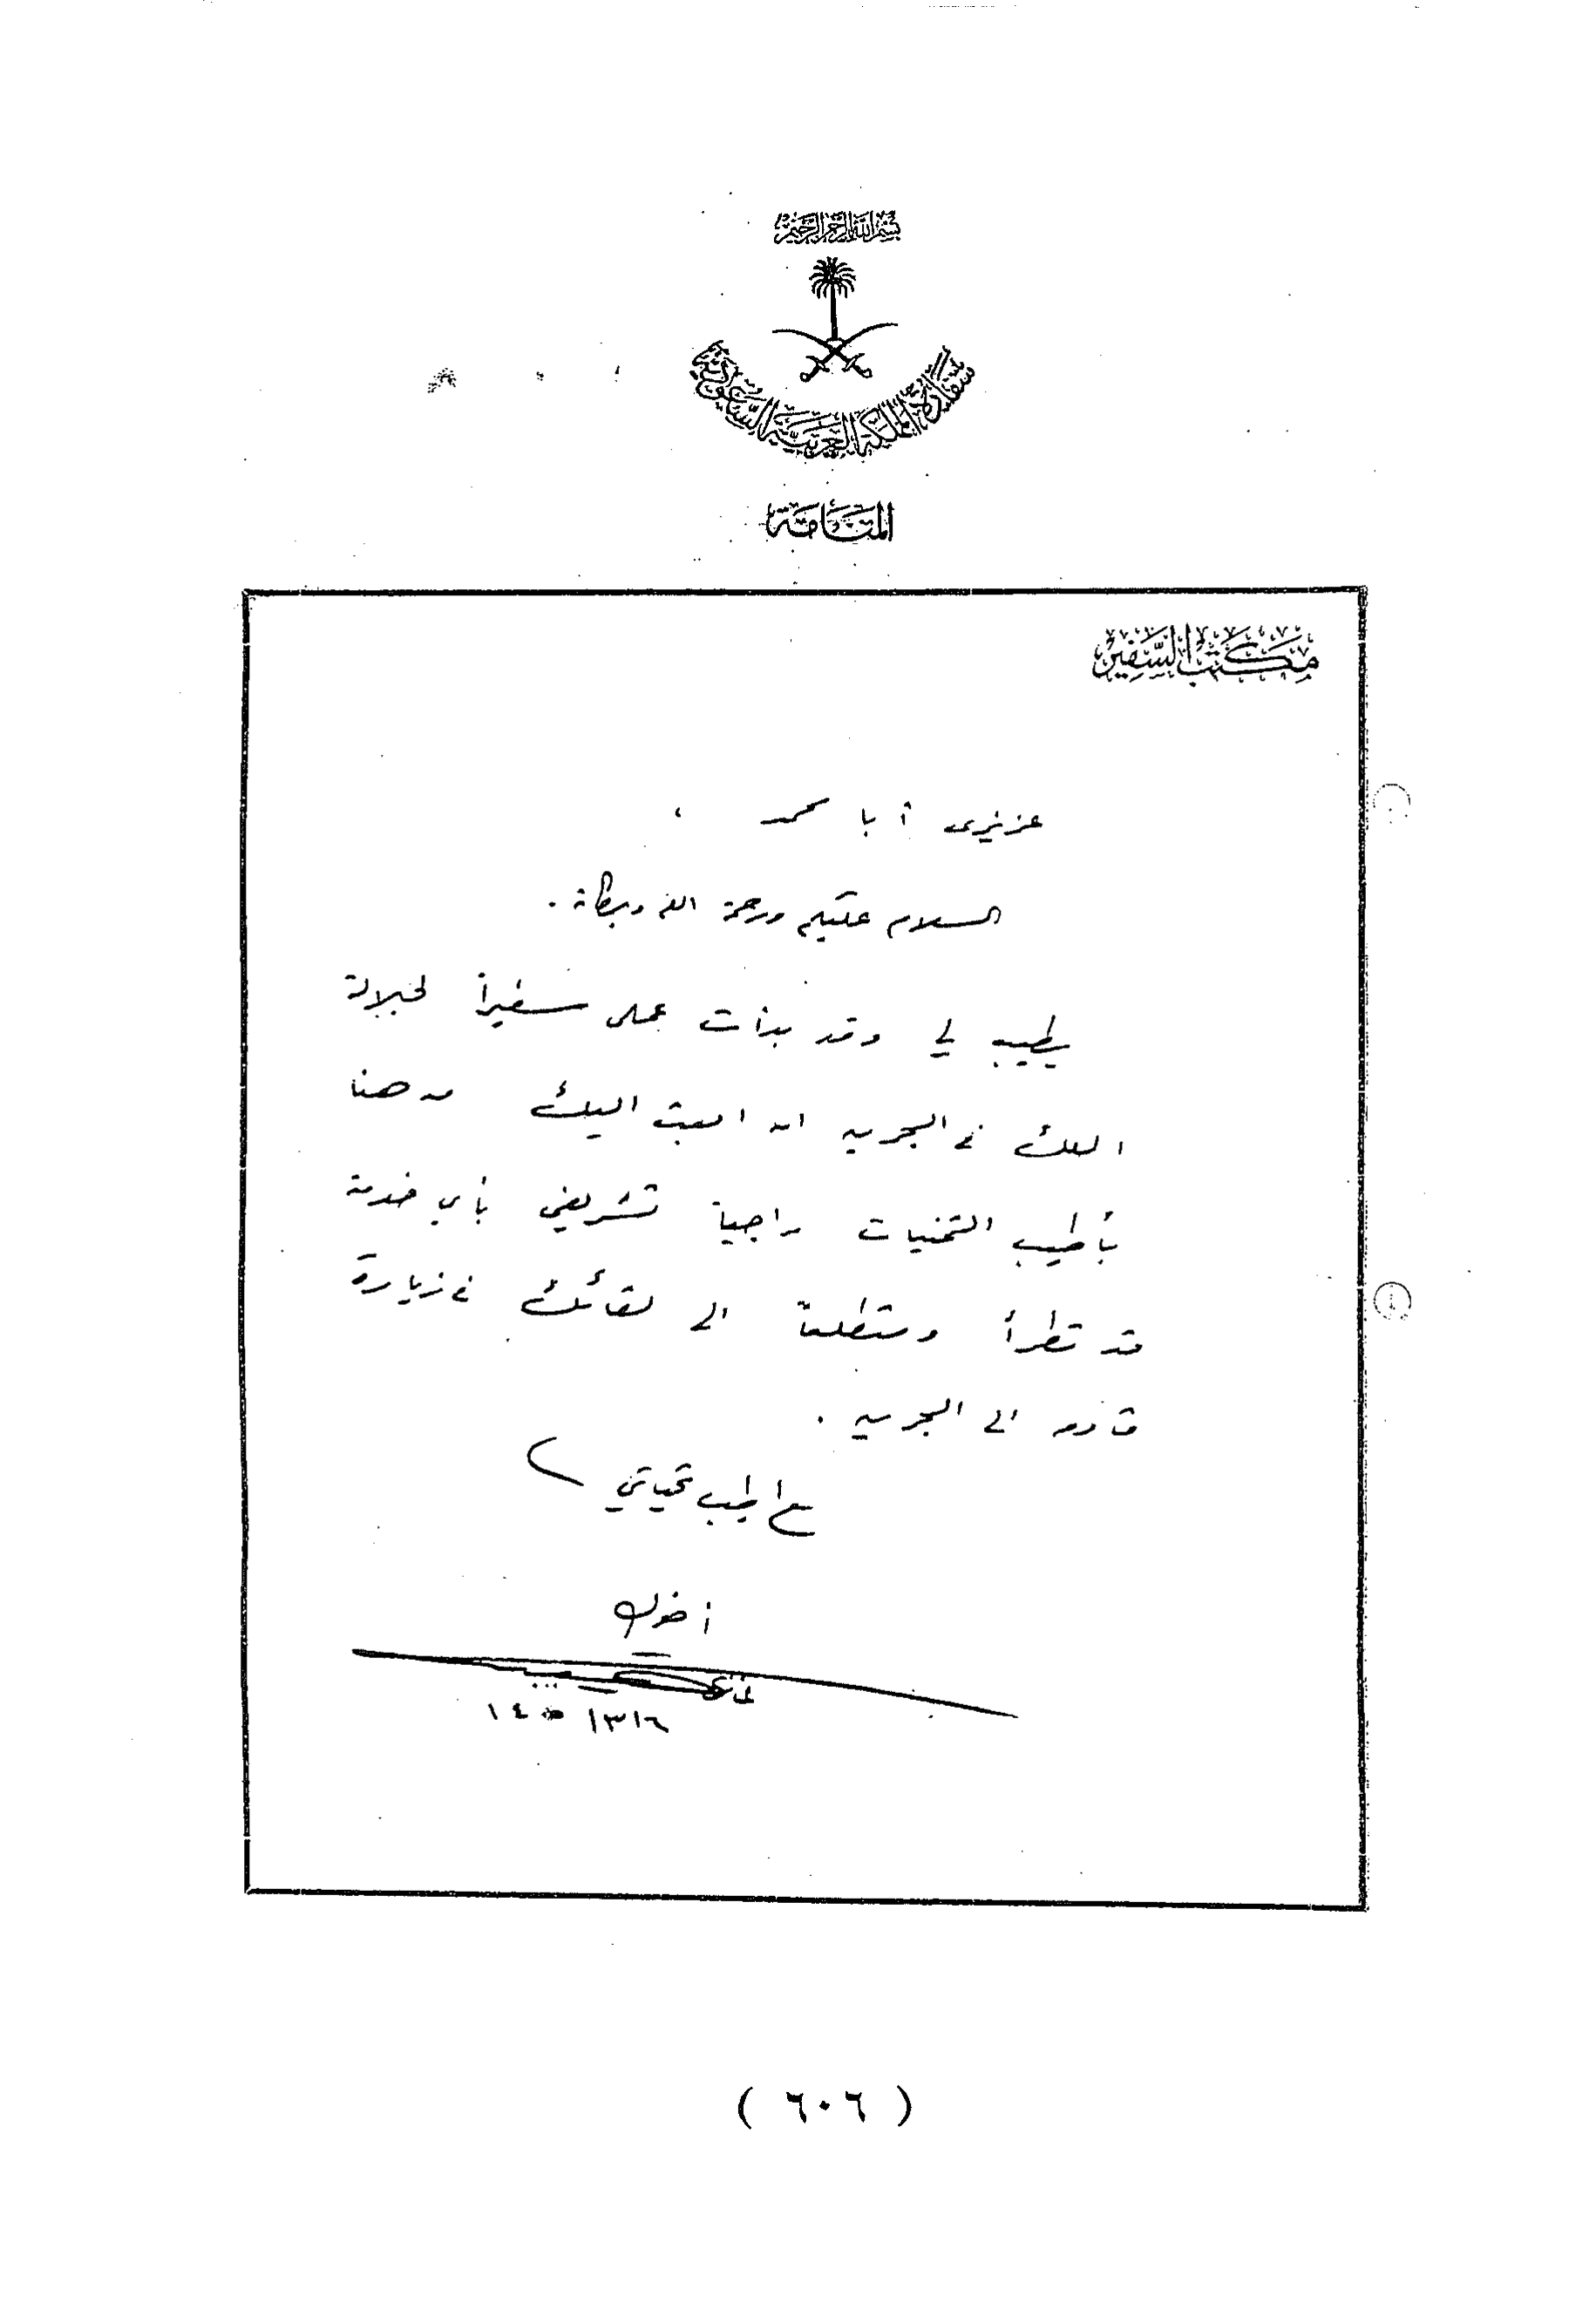 بسم الله الرحمن الرحيم
سفارة المملكة العربية السعودية
المنامة
مكتب السفير
عزيزي أبا محمد ،
السلام عليكم ورحمة الله وبركاته .
يطيب لي وقد بدأت عملي سفيراً لجلالة
الملك في البحرين ان ابعث اليك من هنا
بأطيب التمنيات راجياً تشريفي بأي خدمة
قد تطرأ ومتطلعاً الى لقائك في زيارة
قادمة الى البحرين .
مع اطيب تحياتي
أخوك
غازي
( ٦٠٦ )